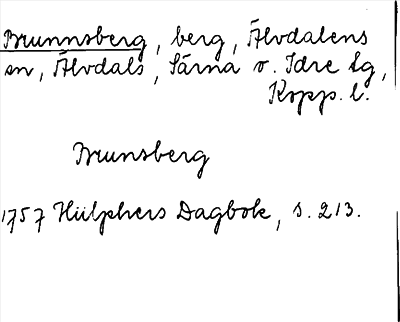 Brunnsberg, berg, Älvdalens
sn, Älvdals, Särna o. Idre tg,
Kopp. l.
Brunsberg
1757 Hülphers Dagbok, s. 213.